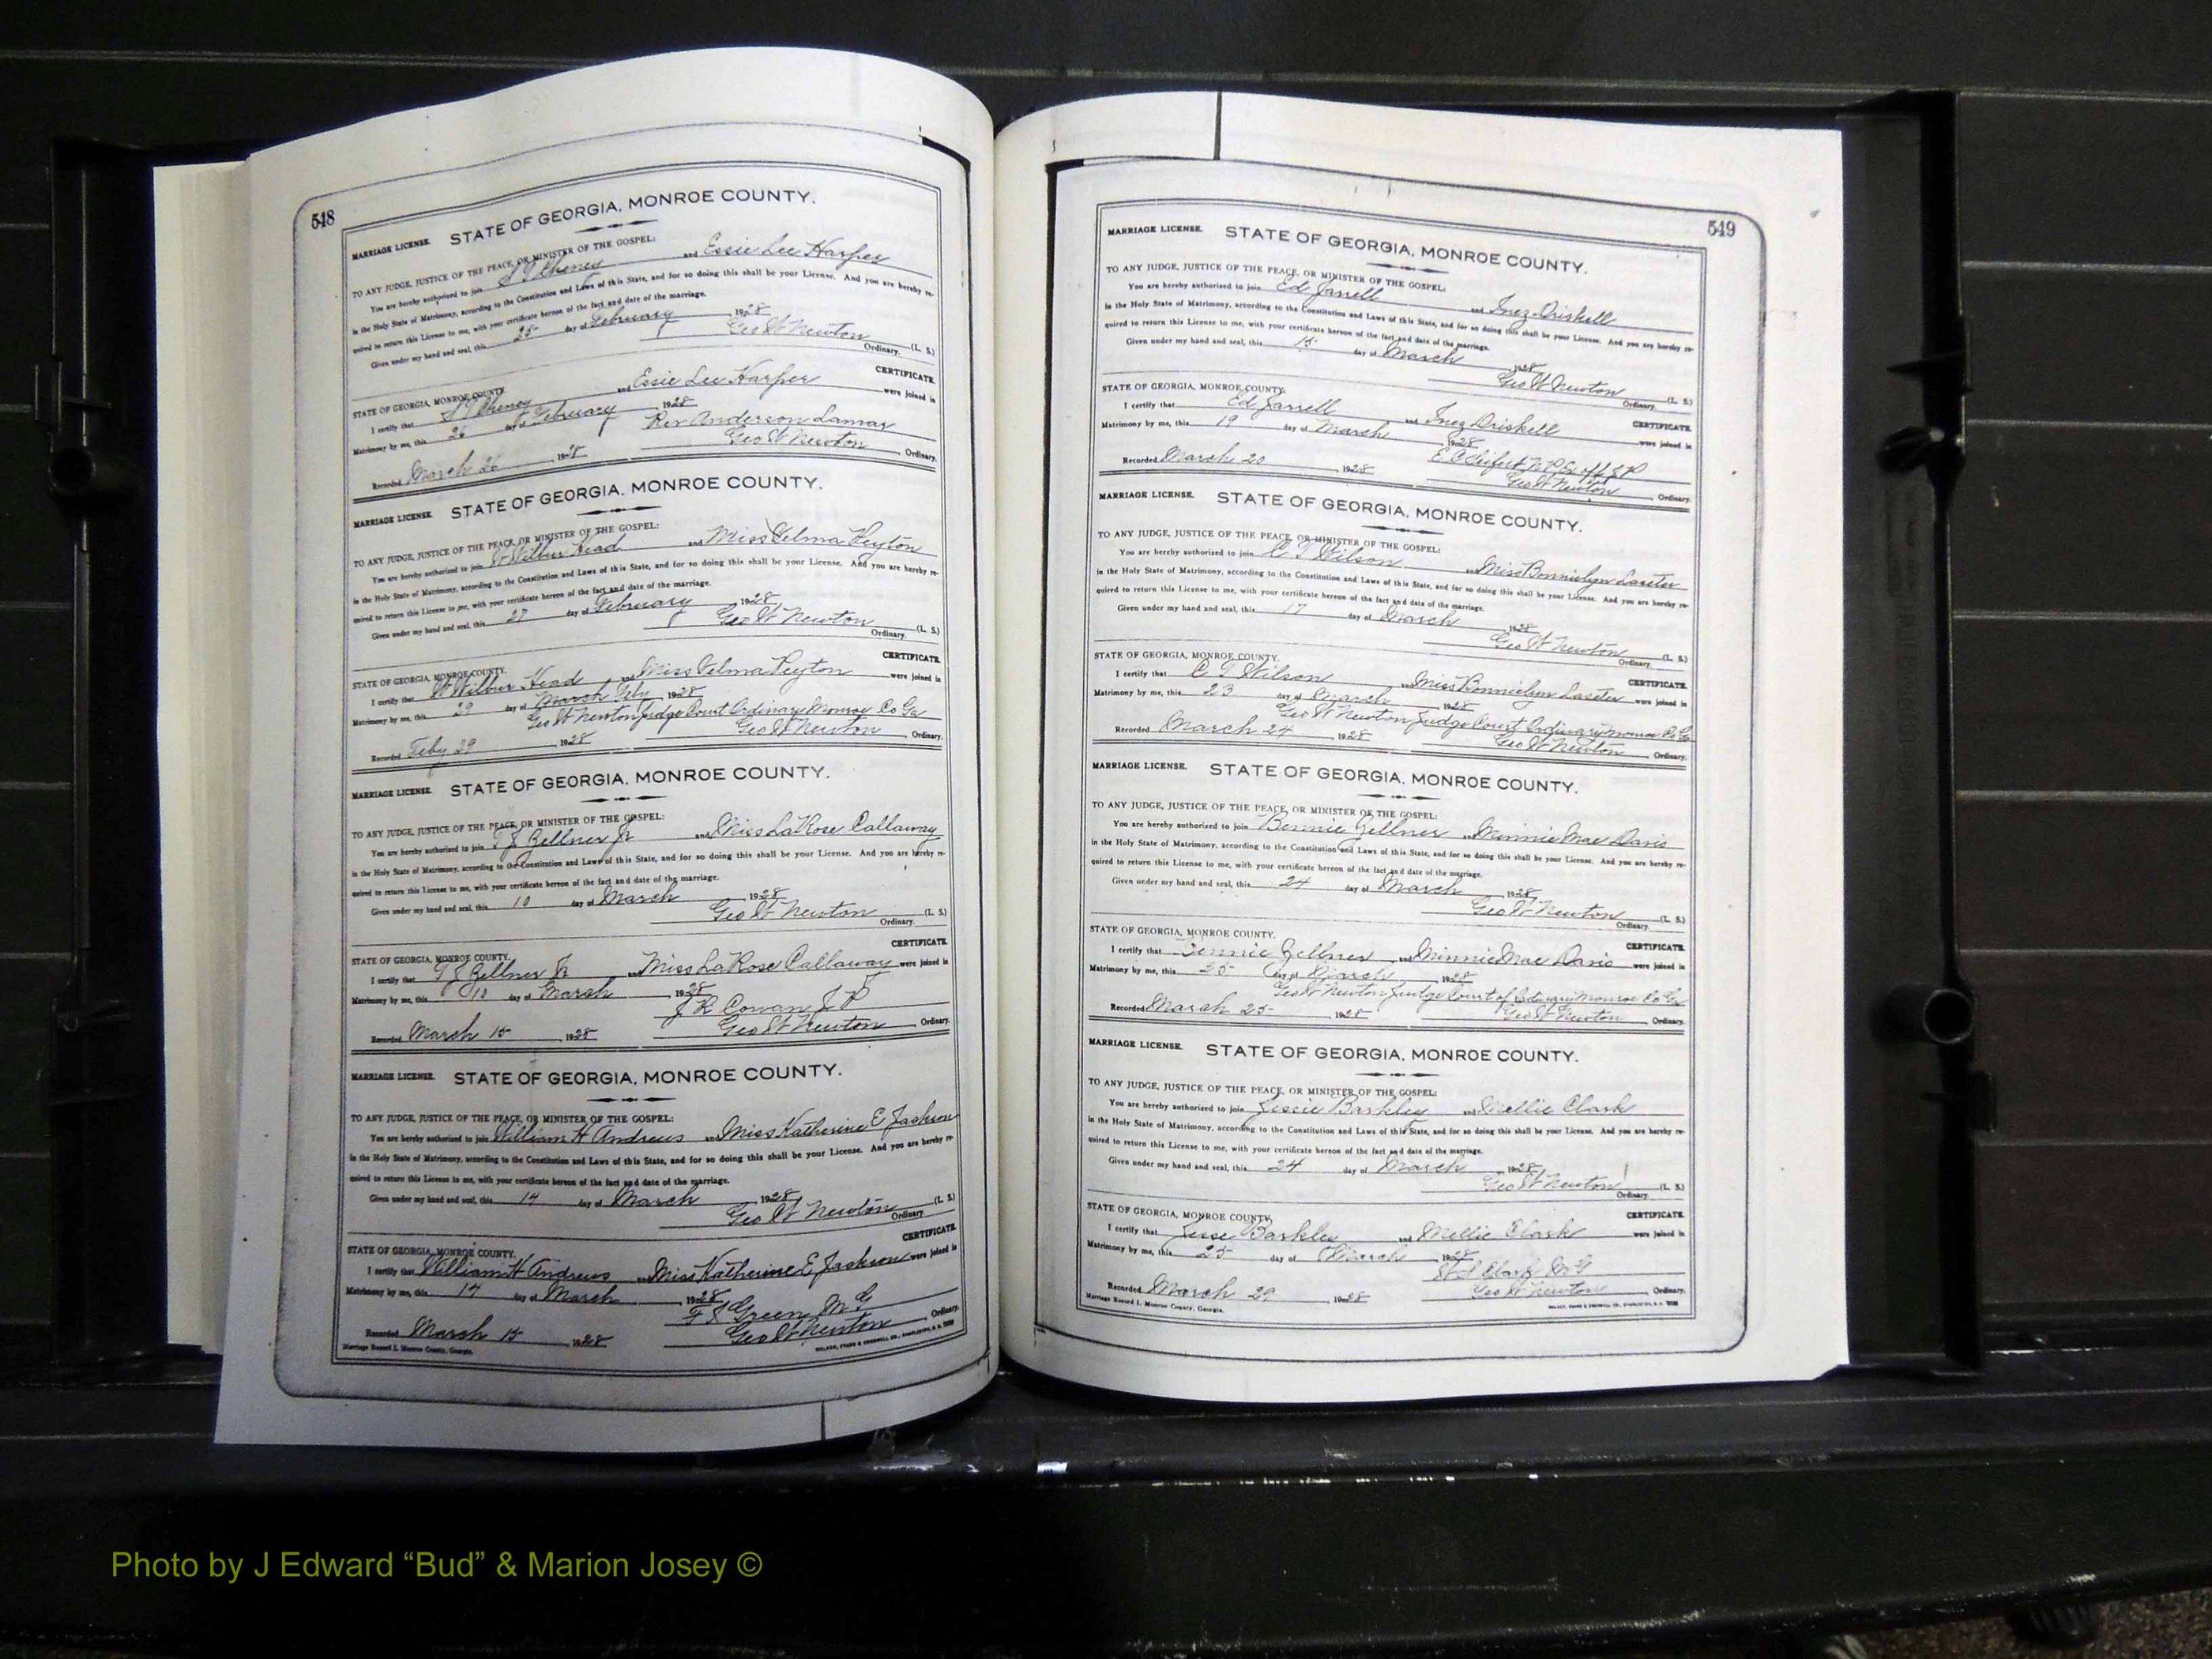 548
MARRIAGE LICENSE. STATE OF GEORGIA, MONROE COUNTY.
TO ANY JUDGE, JUSTICE OF THE PEACE, OR MINISTER OF THE GOSPEL:
You are hereby authorized to join S T Cheney and Essie Lee Harper
in the Holy State of Matrimony, according to the Constitution and Laws of this State, and for so doing this shall be your License. And you are hereby re-
quired to return this License to me, with your certificate hereon of the fact and date of the marriage.
Given under my hand and seal, this 25 day of February 1928
Geo W Newton (L. S.)
Ordinary.
STATE OF GEORGIA, MONROE COUNTY. CERTIFICATE.
I certify that S T Cheney and Essie Lee Harper were joined in
Matrimony by me, this 26 day of February 1928
Rev Anderson Lamar
Recorded March 26 1928 Geo W Newton Ordinary.
MARRIAGE LICENSE. STATE OF GEORGIA, MONROE COUNTY.
TO ANY JUDGE, JUSTICE OF THE PEACE, OR MINISTER OF THE GOSPEL:
You are hereby authorized to join W Wilbur Head and Miss Velma Peyton
in the Holy State of Matrimony, according to the Constitution and Laws of this State, and for so doing this shall be your License. And you are hereby re-
quired to return this License to me, with your certificate hereon of the fact and date of the marriage.
Given under my hand and seal, this 27 day of February 1928
Geo W Newton (L. S.)
Ordinary.
STATE OF GEORGIA, MONROE COUNTY. CERTIFICATE.
I certify that W Wilbur Head and Miss Velma Peyton were joined in
Matrimony by me, this 29 day of March Feby 1928
Geo W Newton Judge Court Ordinary Monroe Co Ga
Recorded Feby 29 1928 Geo W Newton Ordinary.
MARRIAGE LICENSE. STATE OF GEORGIA, MONROE COUNTY.
TO ANY JUDGE, JUSTICE OF THE PEACE, OR MINISTER OF THE GOSPEL:
You are hereby authorized to join Zellner Jr and Miss LaRose Callaway
in the Holy State of Matrimony, according to the Constitution and Laws of this State, and for so doing this shall be your License. And you are hereby re-
quired to return this License to me, with your certificate hereon of the fact and date of the marriage.
Given under my hand and seal, this 10 day of March 1928
Geo W Newton (L. S.)
Ordinary.
STATE OF GEORGIA, MONROE COUNTY. CERTIFICATE.
I certify that Zellner Jr and Miss LaRose Callaway were joined in
Matrimony by me, this 10 day of March 1928
J R Cowan J P
Recorded March 15 1928 Geo W Newton Ordinary.
MARRIAGE LICENSE. STATE OF GEORGIA, MONROE COUNTY.
TO ANY JUDGE, JUSTICE OF THE PEACE, OR MINISTER OF THE GOSPEL:
You are hereby authorized to join William H Andrews and Miss Katherine E Jackson
in the Holy State of Matrimony, according to the Constitution and Laws of this State, and for so doing this shall be your License. And you are hereby re-
quired to return this License to me, with your certificate hereon of the fact and date of the marriage.
Given under my hand and seal, this 14 day of March 1928
Geo W Newton (L. S.)
Ordinary.
STATE OF GEORGIA, MONROE COUNTY. CERTIFICATE.
I certify that William H Andrews and Miss Katherine E Jackson were joined in
Matrimony by me, this 14 day of March 1928
F S Green M G
Recorded March 15 1928 Geo W Newton Ordinary.
Marriage Record L Monroe County, Georgia.
549
MARRIAGE LICENSE. STATE OF GEORGIA, MONROE COUNTY.
TO ANY JUDGE, JUSTICE OF THE PEACE, OR MINISTER OF THE GOSPEL:
You are hereby authorized to join Ed Jarrell and Inez Driskell
in the Holy State of Matrimony, according to the Constitution and Laws of this State, and for so doing this shall be your License. And you are hereby re-
quired to return this License to me, with your certificate hereon of the fact and date of the marriage.
Given under my hand and seal, this 15 day of March 1928
Geo W Newton (L. S.)
Ordinary.
STATE OF GEORGIA, MONROE COUNTY. CERTIFICATE.
I certify that Ed Jarrell and Inez Driskell were joined in
Matrimony by me, this 19 day of March 1928
Recorded March 20 1928 Geo W Newton Ordinary.
MARRIAGE LICENSE. STATE OF GEORGIA, MONROE COUNTY.
TO ANY JUDGE, JUSTICE OF THE PEACE, OR MINISTER OF THE GOSPEL:
You are hereby authorized to join C T Wilson and Miss Bonnielyn Laseter
in the Holy State of Matrimony, according to the Constitution and Laws of this State, and for so doing this shall be your License. And you are hereby re-
quired to return this License to me, with your certificate hereon of the fact and date of the marriage.
Given under my hand and seal, this 17 day of March 1928
Geo W Newton (L. S.)
Ordinary.
STATE OF GEORGIA, MONROE COUNTY. CERTIFICATE.
I certify that C T Wilson and Miss Bonnielyn Laseter were joined in
Matrimony by me, this 23 day of March 1928
Geo W Newton Judge Court Ordinary Monroe Co Ga
Recorded March 24 1928 Geo W Newton Ordinary.
MARRIAGE LICENSE. STATE OF GEORGIA, MONROE COUNTY.
TO ANY JUDGE, JUSTICE OF THE PEACE, OR MINISTER OF THE GOSPEL:
You are hereby authorized to join Bennie Zellner and Minnie Mae Davis
in the Holy State of Matrimony, according to the Constitution and Laws of this State, and for so doing this shall be your License. And you are hereby re-
quired to return this License to me, with your certificate hereon of the fact and date of the marriage.
Given under my hand and seal, this 24 day of March 1928
Geo W Newton (L. S.)
Ordinary.
STATE OF GEORGIA, MONROE COUNTY. CERTIFICATE.
I certify that Bennie Zellner and Minnie Mae Davis were joined in
Matrimony by me, this 25 day of March 1928
Geo W Newton Judge Court of Ordinary Monroe Co Ga
Recorded March 25 1928 Geo W Newton Ordinary.
MARRIAGE LICENSE. STATE OF GEORGIA, MONROE COUNTY.
TO ANY JUDGE, JUSTICE OF THE PEACE, OR MINISTER OF THE GOSPEL:
You are hereby authorized to join Jessie Barkley and Mellie Clark
in the Holy State of Matrimony, according to the Constitution and Laws of this State, and for so doing this shall be your License. And you are hereby re-
quired to return this License to me, with your certificate hereon of the fact and date of the marriage.
Given under my hand and seal, this 24 day of March 1928
Geo W Newton (L. S.)
Ordinary.
STATE OF GEORGIA, MONROE COUNTY. CERTIFICATE.
I certify that Jesse Barkley and Mellie Clark were joined in
Matrimony by me, this 25 day of March 1928
Clark M G
Recorded March 29 1928 Geo W Newton Ordinary.
Marriage Record L Monroe County, Georgia.
Photo by J Edward “Bud” & Marion Josey ©